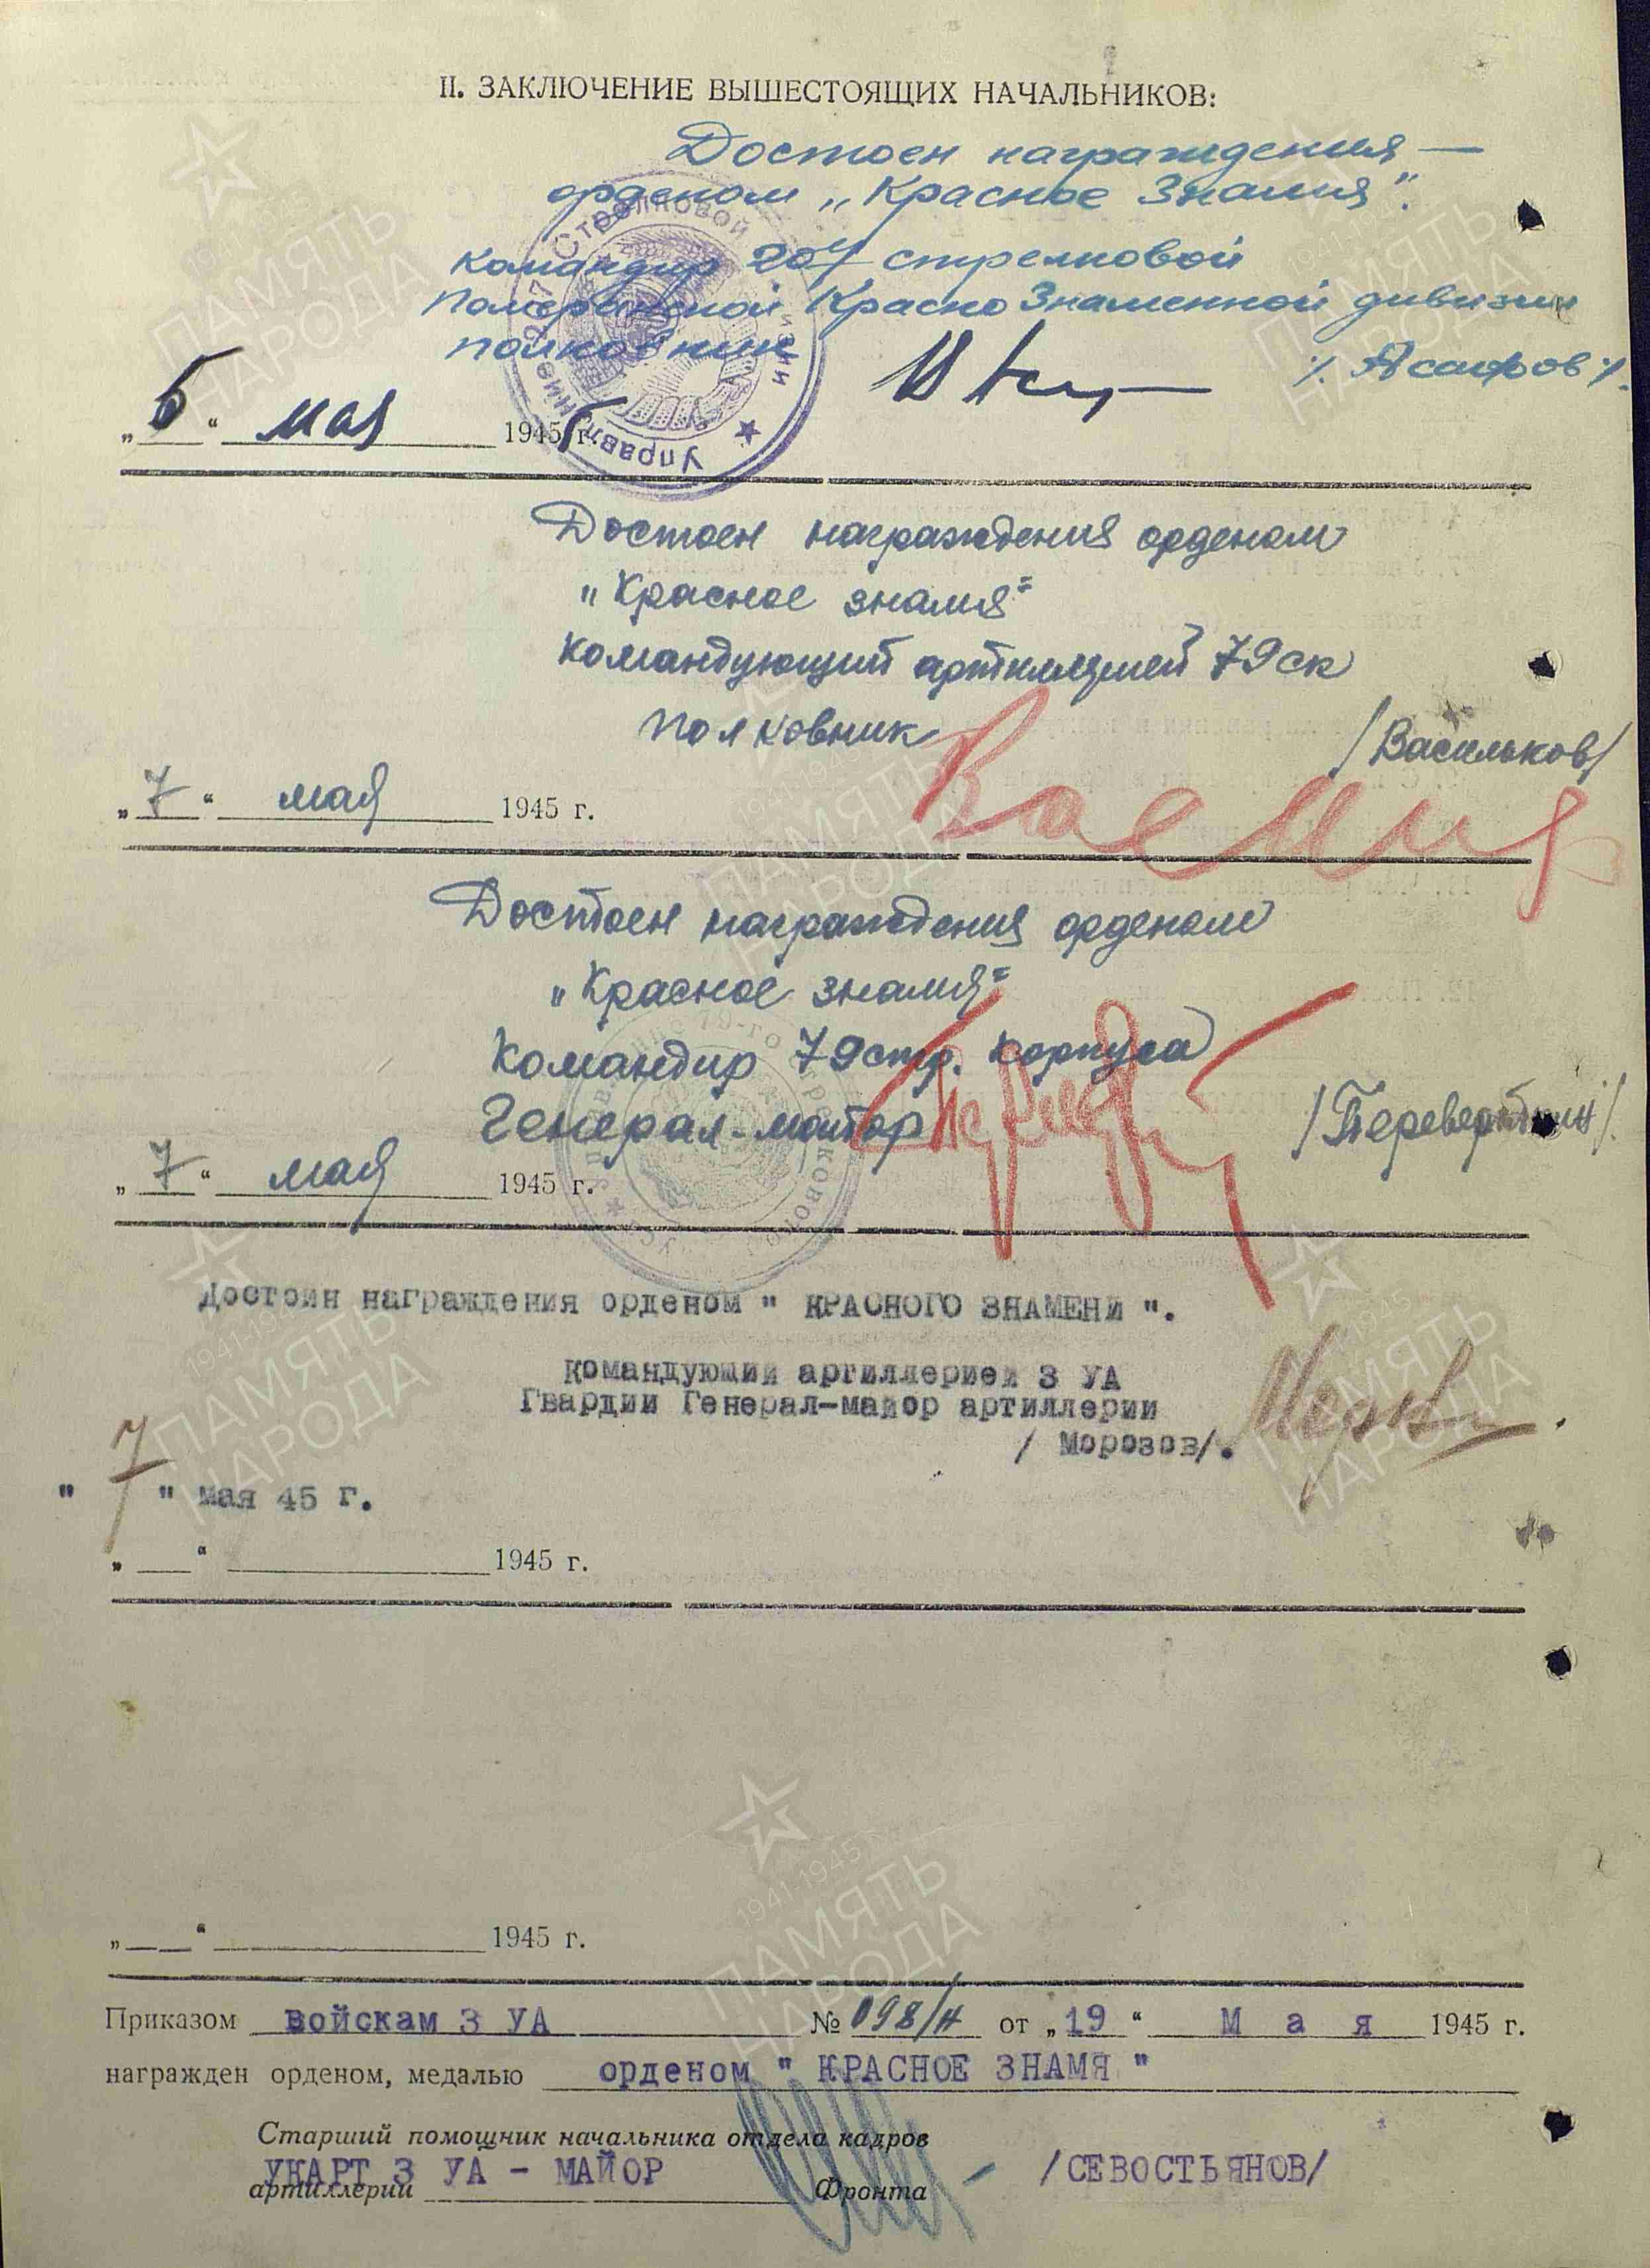 II. ЗАКЛЮЧЕНИЕ ВЫШЕСТОЯЩИХ НАЧАЛЬНИКОВ:
Достоен награждения —
орденом „Красное Знамя".
Командир 207 стрелковой
Померанской Красно Знаменной дивизии
полковник /. Асафов /.
„6“ мая 1945 г.
Достоен награждения орденом
„Красное знамя"
Командующий артиллерией 79 ск
полковник /Васильков/
„7“ мая 1945 г.
Достоен награждения орденом
„Красное знамя"
Командир 79 стр. корпуса
Генерал-майор /Переверткин/.
„7“ мая 1945 г.
Достоин награждения орденом " КРАСНОГО ЗНАМЕНИ ".
Командующий артиллерией 3 УА
Гвардии Генерал-майор артиллерии
/ Морозов/.
" 7 " мая 45 г.
„___“ 1945 г.
„___“ 1945 г.
Приказом войскам 3 УА № 098/н от „19“ М а я 1945 г.
награжден орденом, медалью орденом " КРАСНОЕ ЗНАМЯ "
Старший помощник начальника отдела кадров
УКАРТ 3 УА - МАЙОР /СЕВОСТЬЯНОВ/
артиллерии Фронта
ПАМЯТЬ НАРОДА
1941-1945